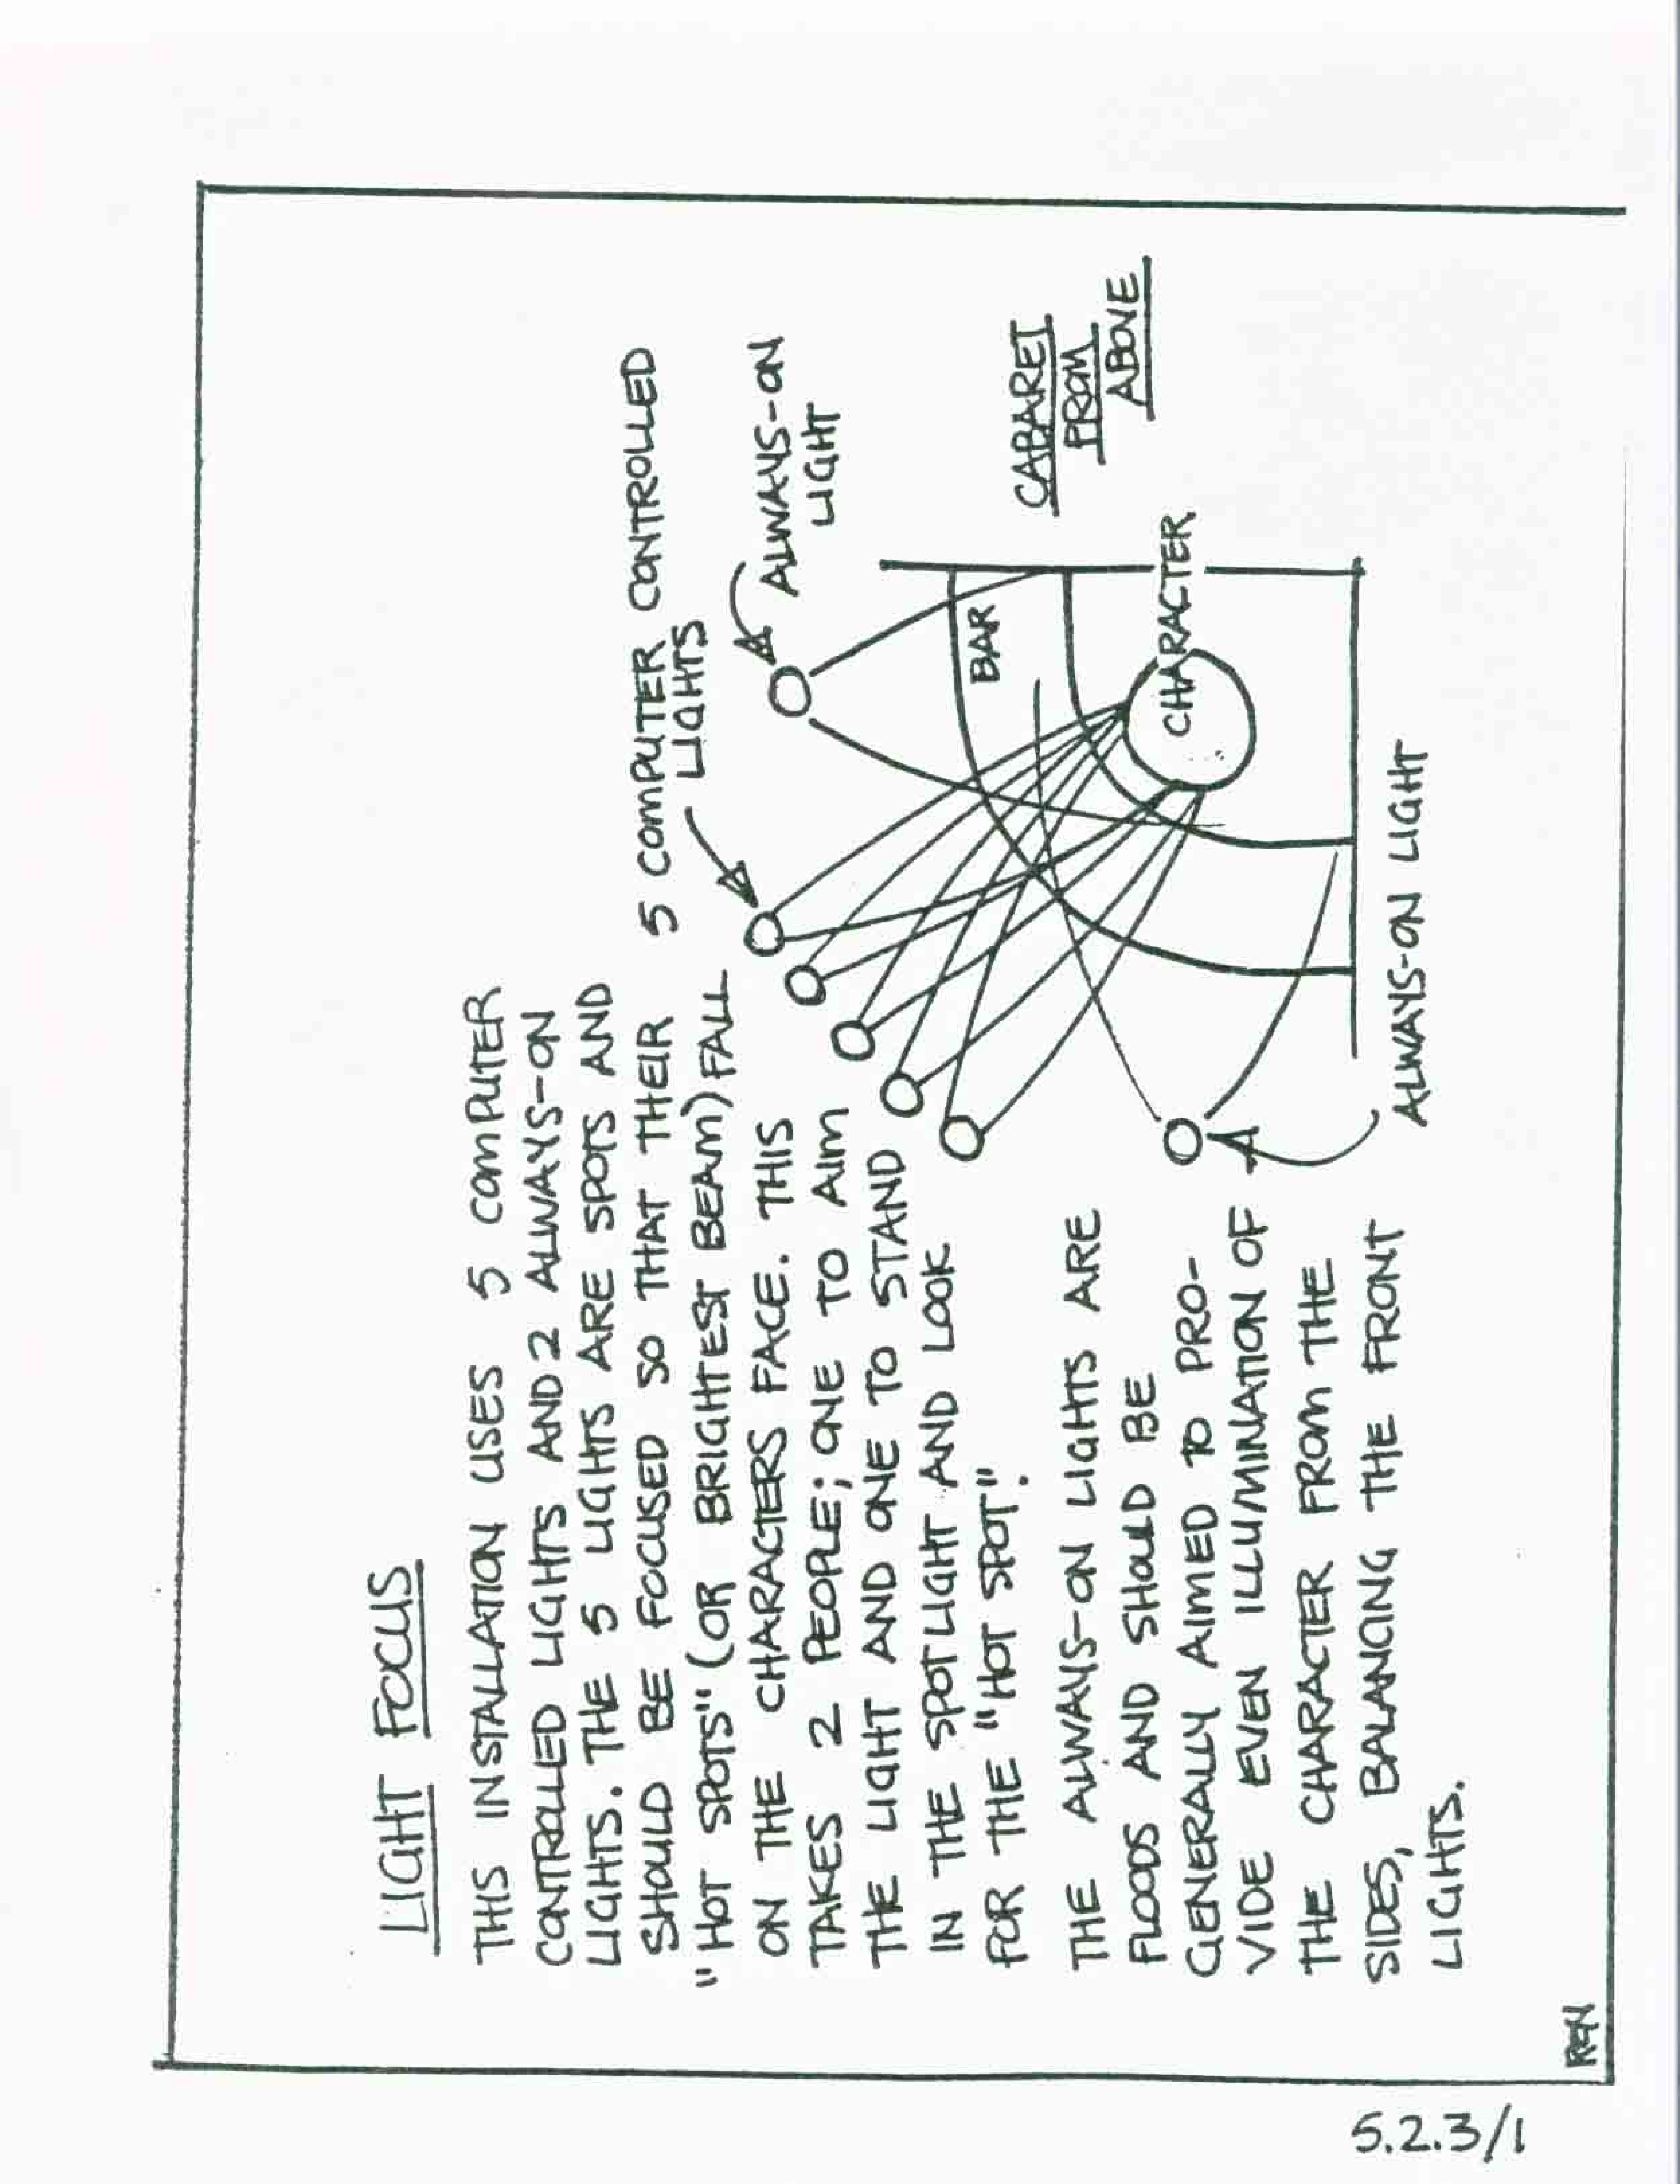 LIGHT FOCUS
THIS INSTALLATION USES 5 COMPUTER
CONTROLLED LIGHTS AND 2 ALWAYS-ON
LIGHTS. THE 5 LIGHTS ARE SPOTS AND
SHOULD BE FOCUSED SO THAT THEIR
"HOT SPOTS" (OR BRIGHTEST BEAM) FALL
ON THE CHARACTERS FACE. THIS
TAKES 2 PEOPLE; ONE TO AIM
THE LIGHT AND ONE TO STAND
IN THE SPOTLIGHT AND LOOK
FOR THE "HOT SPOT".
THE ALWAYS-ON LIGHTS ARE
FLOODS AND SHOULD BE
GENERALLY AIMED TO PRO-
VIDE EVEN ILLUMINATION OF
THE CHARACTER FROM THE
SIDES, BALANCING THE FRONT
LIGHTS.
5 COMPUTER CONTROLLED
LIGHTS
ALWAYS-ON
LIGHT
BAR
CABARET
FROM
ABOVE
CHARACTER
ALWAYS-ON LIGHT
RGN
5.2.3/1